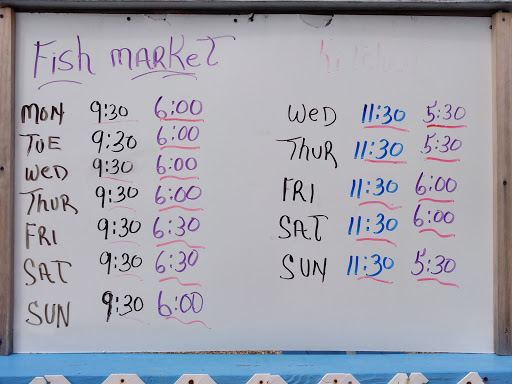 Fish MARKET
MON 9:30 6:00
TUE 9:30 6:00
WED 9:30 6:00
THUR 9:30 6:00
FRI 9:30 6:30
SAT 9:30 6:30
SUN 9:30 6:00
Kitchen
WED 11:30 5:30
THUR 11:30 5:30
FRI 11:30 6:00
SAT 11:30 6:00
SUN 11:30 5:30